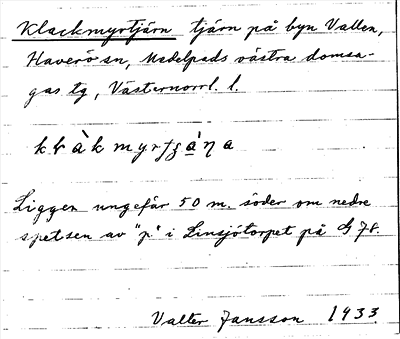 Klackmyrtjärn tjärn på byn Vallen,
Haverö sn, Medelpads västra domsa-
gas tg, Västernorrl. l.
Ligger ungefär 50 m. söder om nedre
spetsen av "p" i Linsjötorpet på G 78.
Valter Jansson 1933